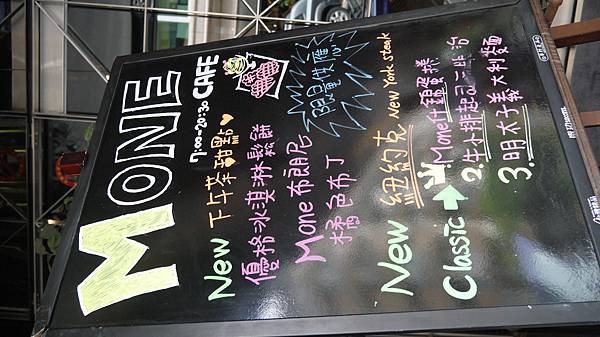 MONE
7:00-20:30 CAFE
New 下午茶甜點
限量供應
優格冰淇淋鬆餅
Mone布朗尼
橘色布丁
New 紐約克 NEW YORK steak
Classic → 1.Mone什錦蛋捲
2.牛小排起司三明治
3.明太子義大利麵